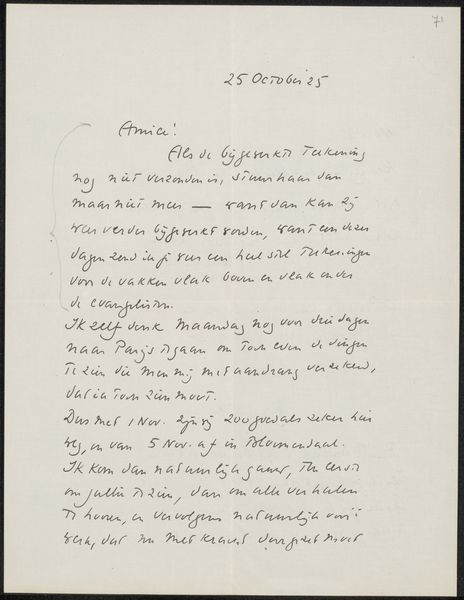 71
25 October 25
Amice!
Als de bijgewerkte Teekening
nog niet verzonden is, stuur haar dan
maar niet meer — want dan kan zij
weer verder bijgewerkt worden, want een dezer
dagen zend ik je weer een heel stel Teekeningen
voor de vakken vlak boven en vlak onder
de evangelisten.
Ik zelf denk Maandag nog voor drie dagen
naar Parijs te gaan om toch even de dingen
te zien die men mij met aandrang verzekerd,
dat ik toch zien moet.
Dus met 1 Nov. zijn wij zoo goed als zeker hier
weg, en van 5 Nov. af in Bloemendaal.
Ik kom dan natuurlijk gauw, ten eerste
om jullie te zien, dan om alle verhalen
te hooren, en vervolgens natuurlijk voor 't
werk, dat nu met kracht doorgezet moet